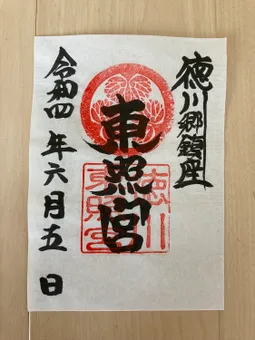 徳川郷鎮座
東照宮
令和四年六月五日
徳川
東照宮